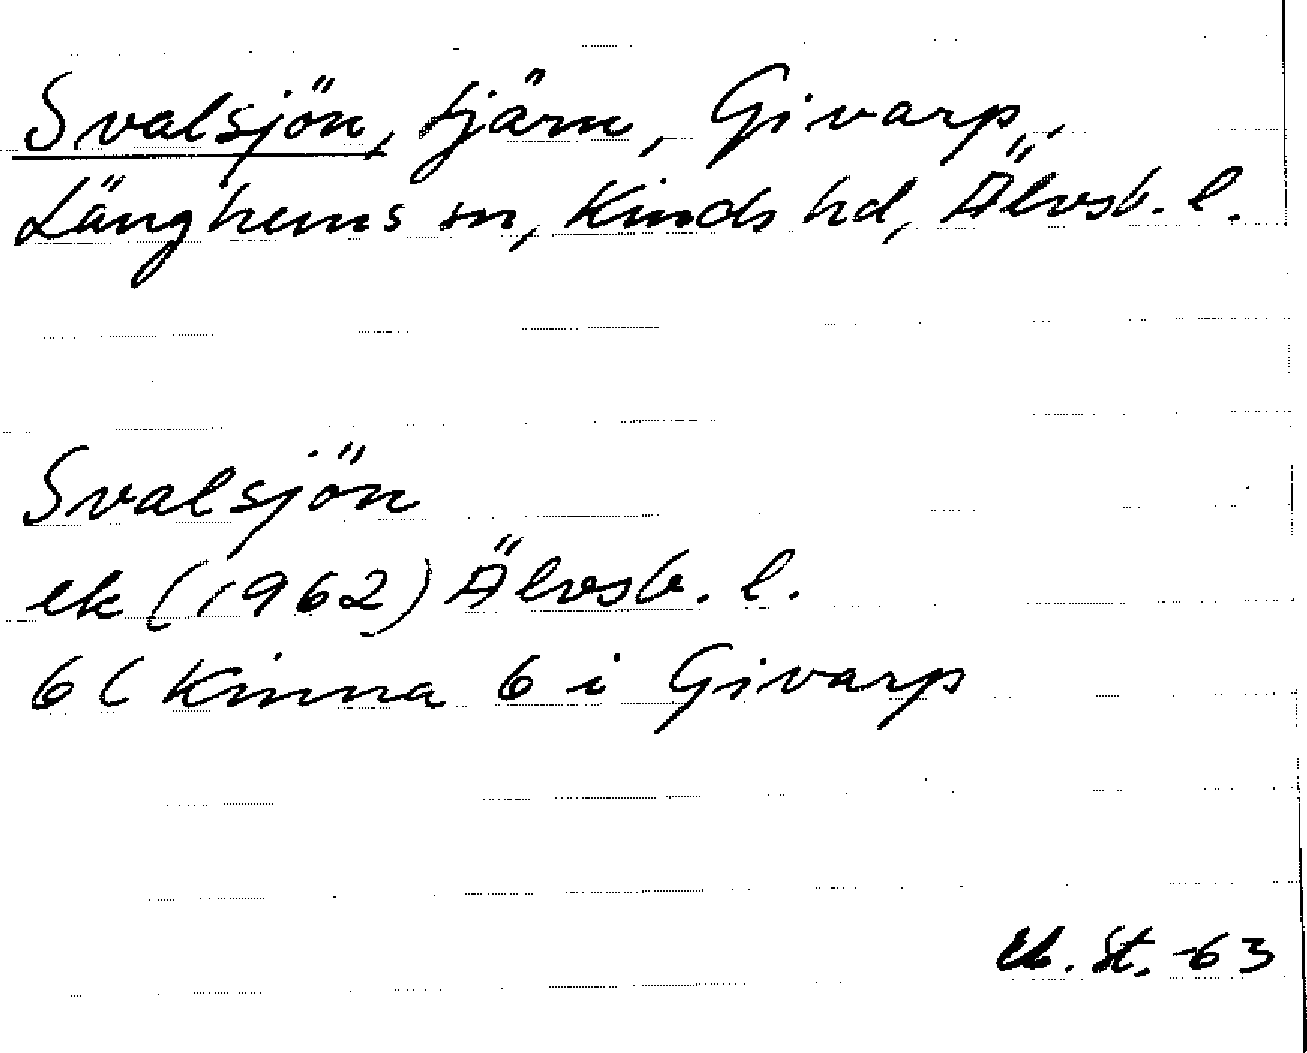 Svalsjön, tjärn, Givarp,
Länghems sn, Kinds hd, Älvsb. l.
Svalsjön
ek (1962) Älvsb. l.
6 C Kinna 6 i Givarp
St. -63